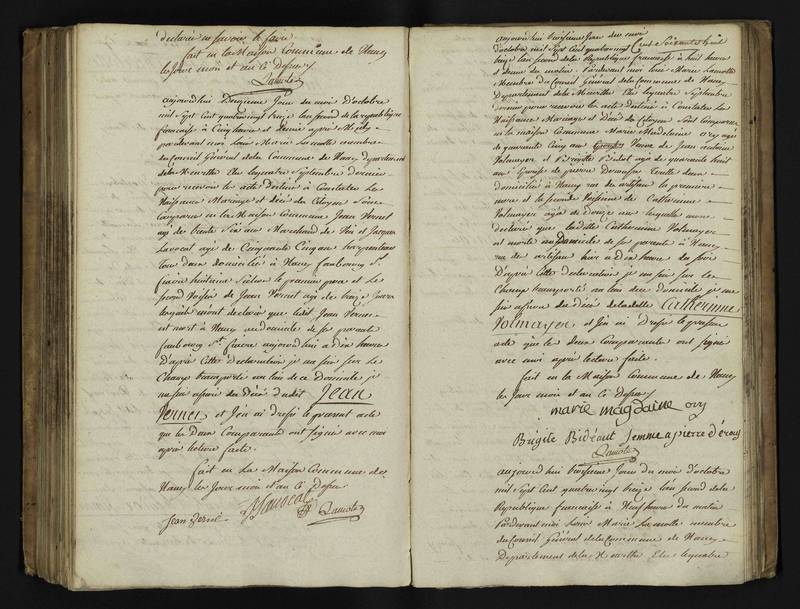 declaré ne savoir le faire
fait en la Maison Commune de Nancy
les Jour mois et an Cy Dessus
Lamotte
aujourd'hui Deuxieme Jour du mois d'octobre
mil Sept Cent quatre vingt treize lan second de la republique
francaise à Cinq heures et demie apres Midy
pardevant moi Louis Marie Lamotte membre
du Conseil Général de la Commune de Nancy departement
de la Meurthe Elu le quatre Septembre dernier
pour recevoir les acte Destiné à Constater Les
Naissance Mariage et décès des Citoyens Sont
Comparus en la Maison Commune Jean Vernet
agé de trente ans Marchand de Vin et Jacques
Lavocat agé de Cinquante Cinq ans
tous deux domicilié à Nancy faubourg St
fiacre huitieme Section le premier pere et Le
second Voisin de Jean Vernet agé de treize Jours
lesquels mont declaré que ledit Jean Vernet
est mort à Nancy au domicile de ses parents
faubourg St fiacre aujourd'hui a dix heures
D'après Cette Declaration je me suis sur Le
Champ transporté au lieu de ce Domicile je
me suis assuré du Décès dudit Jean
Vernet et J'en ai Dressé le present acte
que les Deux Comparants ont Signé avec moi
après lecture faite.
fait en La Maison Commune de
Nancy les Jour mois et an Cy Dessus
Jean Vernet Lavocat Lamotte
Cent Soixante huit
aujourd'hui troisieme Jour du mois
d'octobre mil Sept Cent quatre vingt
treize lan second de la Republique francaise à huit heures
du matin. Pardevant moi Louis Marie Lamotte
Membre du Conseil Général de la Commune de Nancy
Departement de la Meurthe Elu le quatre Septembre
dernier pour recevoir les acte Destiné à Constater Les
Naissance Mariage et Décès des Citoyens Sont Comparues
en la maison Commune Marie Madelaine Ory agée
de quarante Cinq ans Veuve de Jean
Volmayer et Brigitte Bidéat agée de quarante huit
ans Epouse de pierre toutte deux
domicilié à Nancy rue des artisans la premiere
mere et la seconde Voisinne de Catherinne
Volmayer agée de douze ans lesquelles mont
declaré que laditte Catherinne Volmayer
est morte au Domicile de ses parents à Nancy
rue des artisans hier a dix heures du soir
D'après Cette declaration je me suis sur Le
Champ transporté au lieu de ce domicile je me
suis assuré du Décès de laditte Catherinne
Volmayer et J'en ai Dressé le present
acte que les Deux Comparantes ont signé
avec moi après lecture faite.
fait en la Maison Commune de Nancy
les Jour mois et an Cy Dessus
marie magdlaine ory
Brigite Bidéaut femme a pierre
Lamotte
aujourd'hui troisieme Jour du mois d'octobre
mil Sept Cent quatre vingt treize lan second de la
Republique francaise à Neuf heures du matin
Pardevant moi Louis Marie Lamotte membre
du Conseil Général de la Commune de Nancy
Departement de la Meurthe Elu le quatre